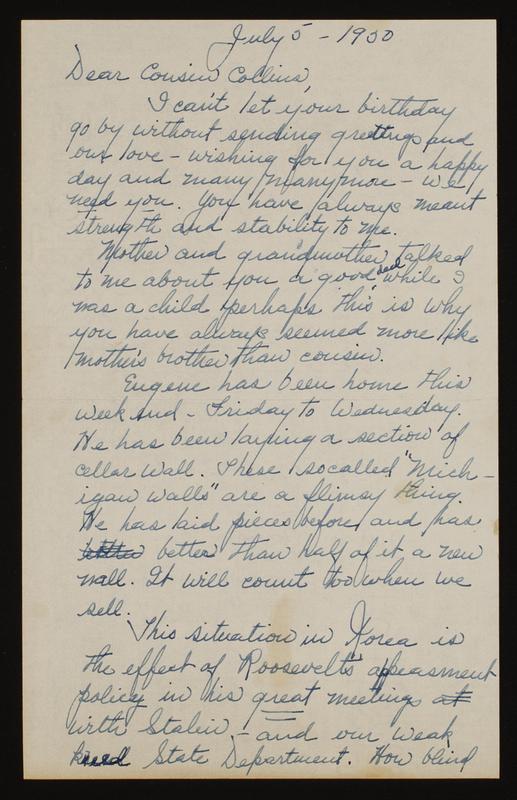 July 5 - 1950
Dear Cousin Collins,
I can't let your birthday
go by without sending greetings and
our love - wishing for you a happy
day and many many more - we
need you. You have always meant
strength and stability to me.
Mother and grandmother talked
to me about you a good deal while I
was a child perhaps this is why
you have always seemed more like
mother's brother than cousin.
Eugene has been home this
week end - Friday to Wednesday.
He has been laying a section of
cellar wall. These socalled "Mich-
igan walls" are a flimsy thing.
He has laid pieces before and has
better than half of it a new
wall. It will count too when we
sell.
This situation in Korea is
the effect of Roosevelt's appeasment
policy in his great meetings at
with Stalin - and our weak
kneed State Department. How blind